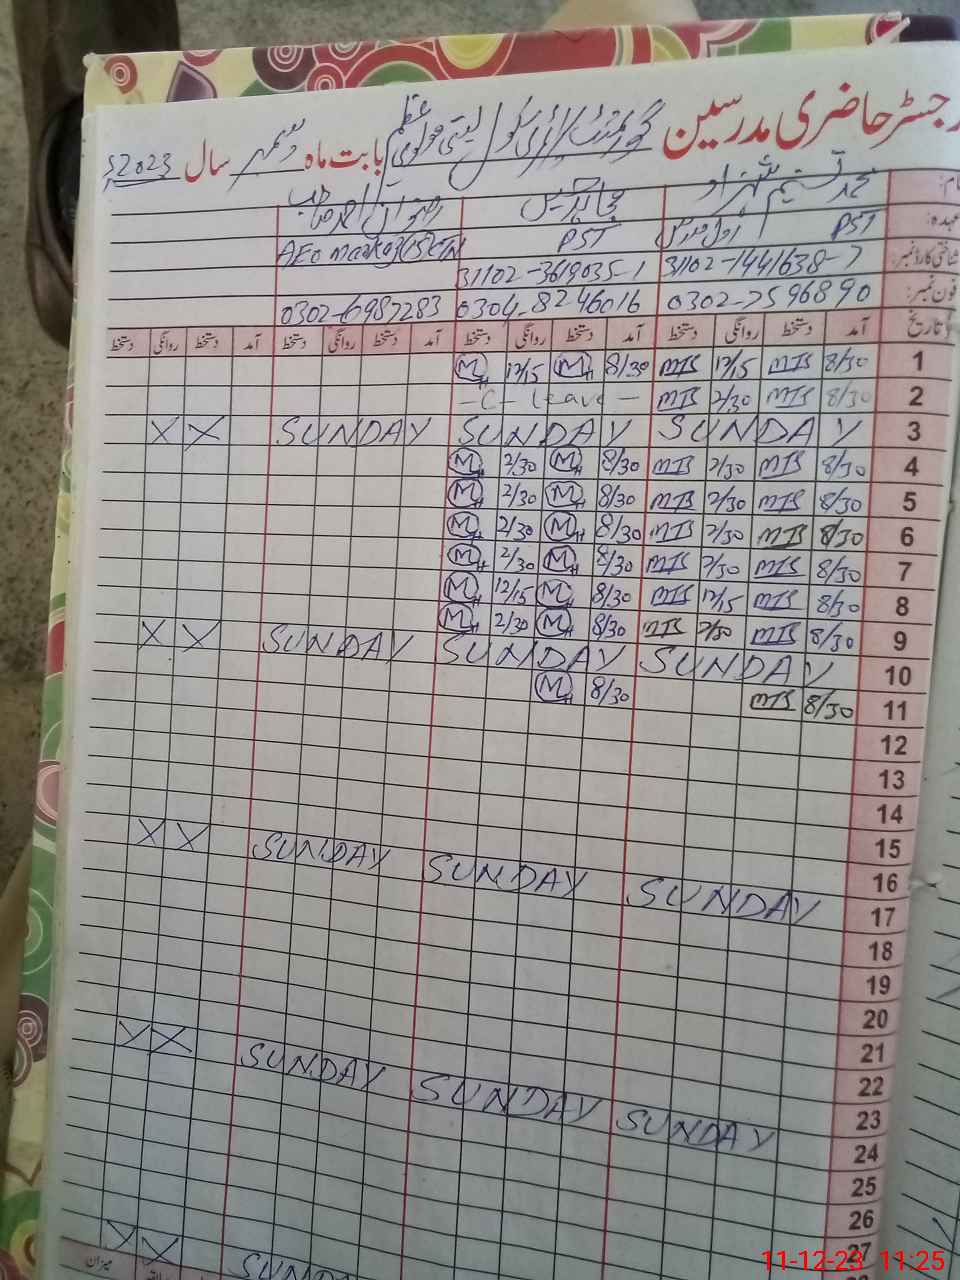 رجسٹر حاضری مدرسین گورنمنٹ پرائمری سکول بستی مولوی بابت ماہ دسمبر سال 2023ء
نام:
عہدہ: PST PST AEO markaz
شناختی کارڈ نمبر: 31102-1441638-7 31102-3619035-1
فون نمبر: 0302-7596890 0304-8246016 0302-6987283
تاریخ آمد دستخط روانگی دستخط آمد دستخط روانگی دستخط آمد دستخط روانگی دستخط آمد دستخط روانگی دستخط
1 8/30 MTS 12/15 MTS 8/30 M 12/15 M
2 8/30 MTS 2/30 MTS -C- Leave -
3 SUNDAY SUNDAY SUNDAY X X
4 8/30 MTS 2/30 MTS 8/30 M 2/30 M
5 8/30 MTS 2/30 MTS 8/30 M 2/30 M
6 8/30 MTS 2/30 MTS 8/30 M 2/30 M
7 8/30 MTS 2/30 MTS 8/30 M 2/30 M
8 8/30 MTS 12/15 MTS 8/30 M 12/15 M
9 8/30 MTS 2/30 MTS 8/30 M 2/30 M
10 SUNDAY SUNDAY SUNDAY X X
11 8/30 MTS 8/30 M
12
13
14
15
16
17 SUNDAY SUNDAY SUNDAY X X
18
19
20
21
22
23
24 SUNDAY SUNDAY SUNDAY X X
25
26
27
SUNDAY X X
میزان
11-12-23 11:25